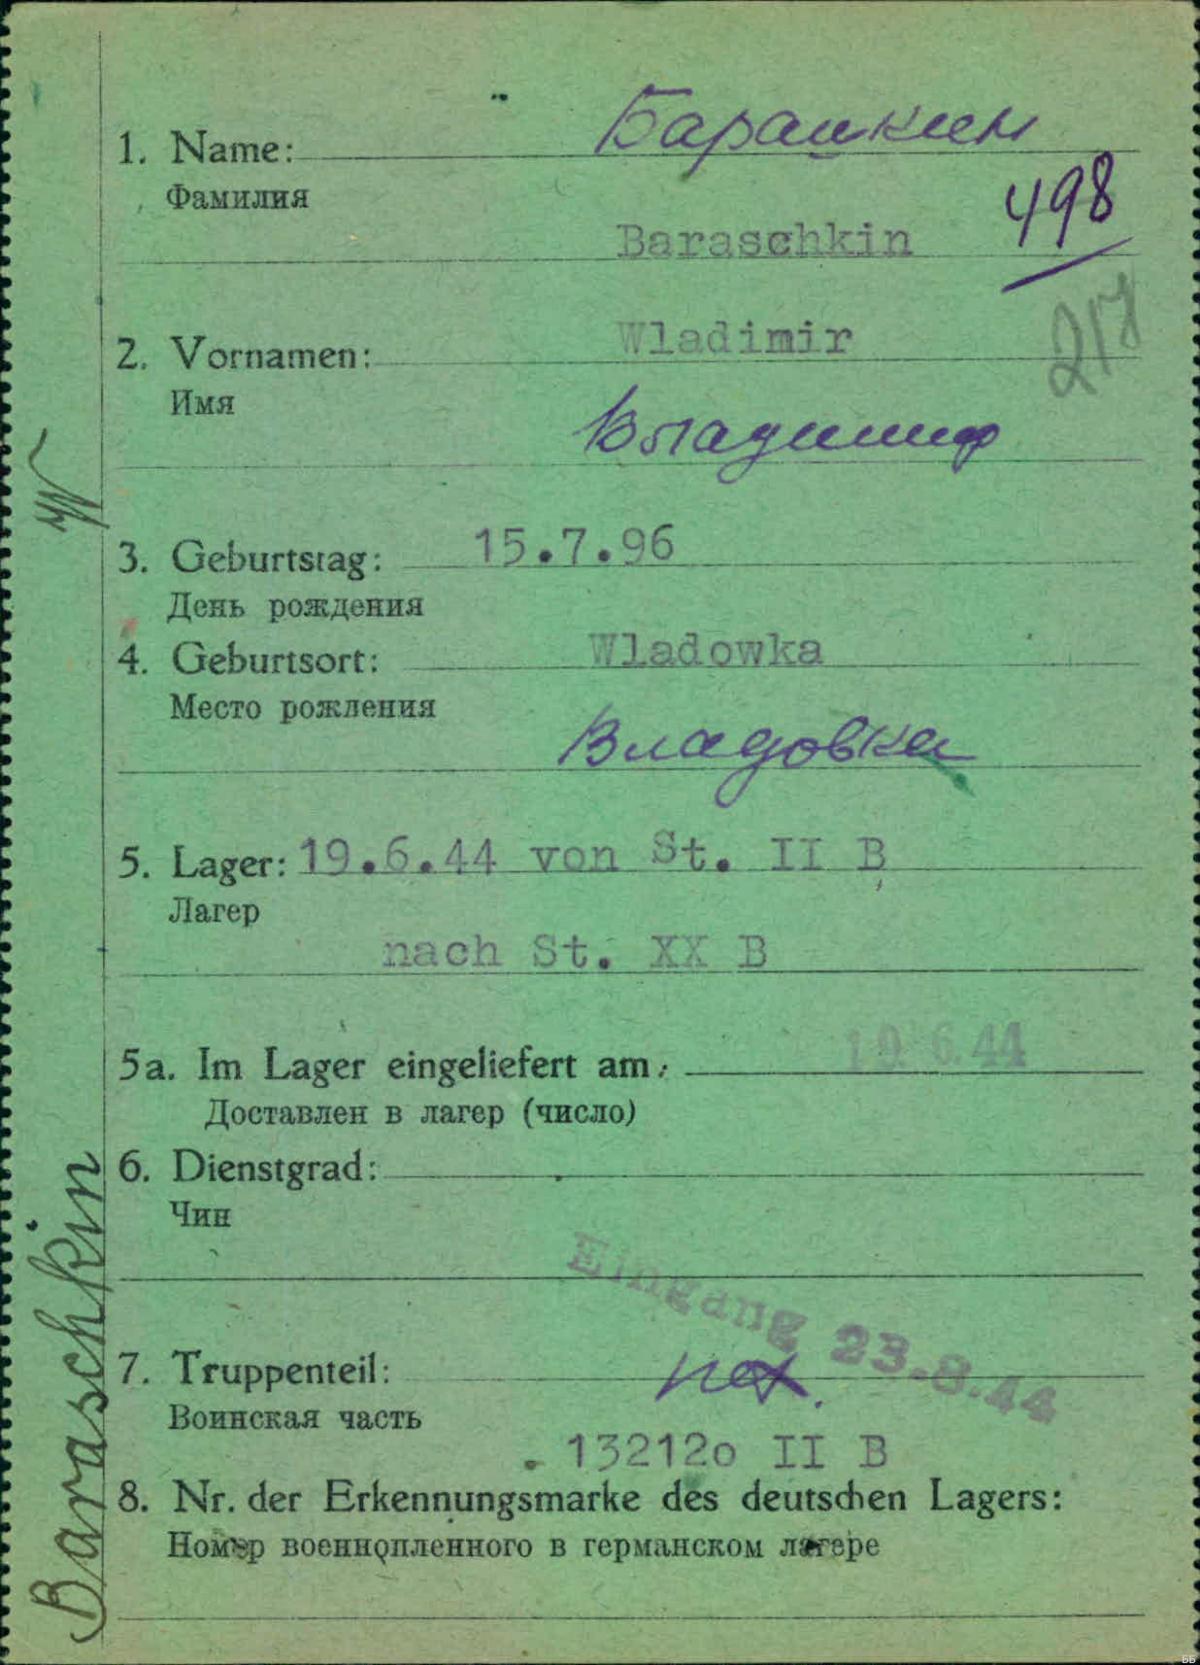 Барашкин
1. Name:
Фамилия
498
Baraschkin
217
Wladimir
2. Vornamen:
Имя
Владимир
15.7.96
3. Geburtstag:
День рождения
Wladowka
4. Geburtsort:
Место рожления
Владовка
5. Lager: 19.6.44 von St. II B
Лагер
nach St. XX B
19.6.44
5a. Im Lager eingeliefert am:
Доставлен в лагер (число)
6. Dienstgrad:
Чин
Eingang 23.8.44
7. Truppenteil:
Воинская часть
13212o II B
8. Nr. der Erkennungsmarke des deutschen Lagers:
Номер военнопленного в германском лагере
Baraschkin
ББ